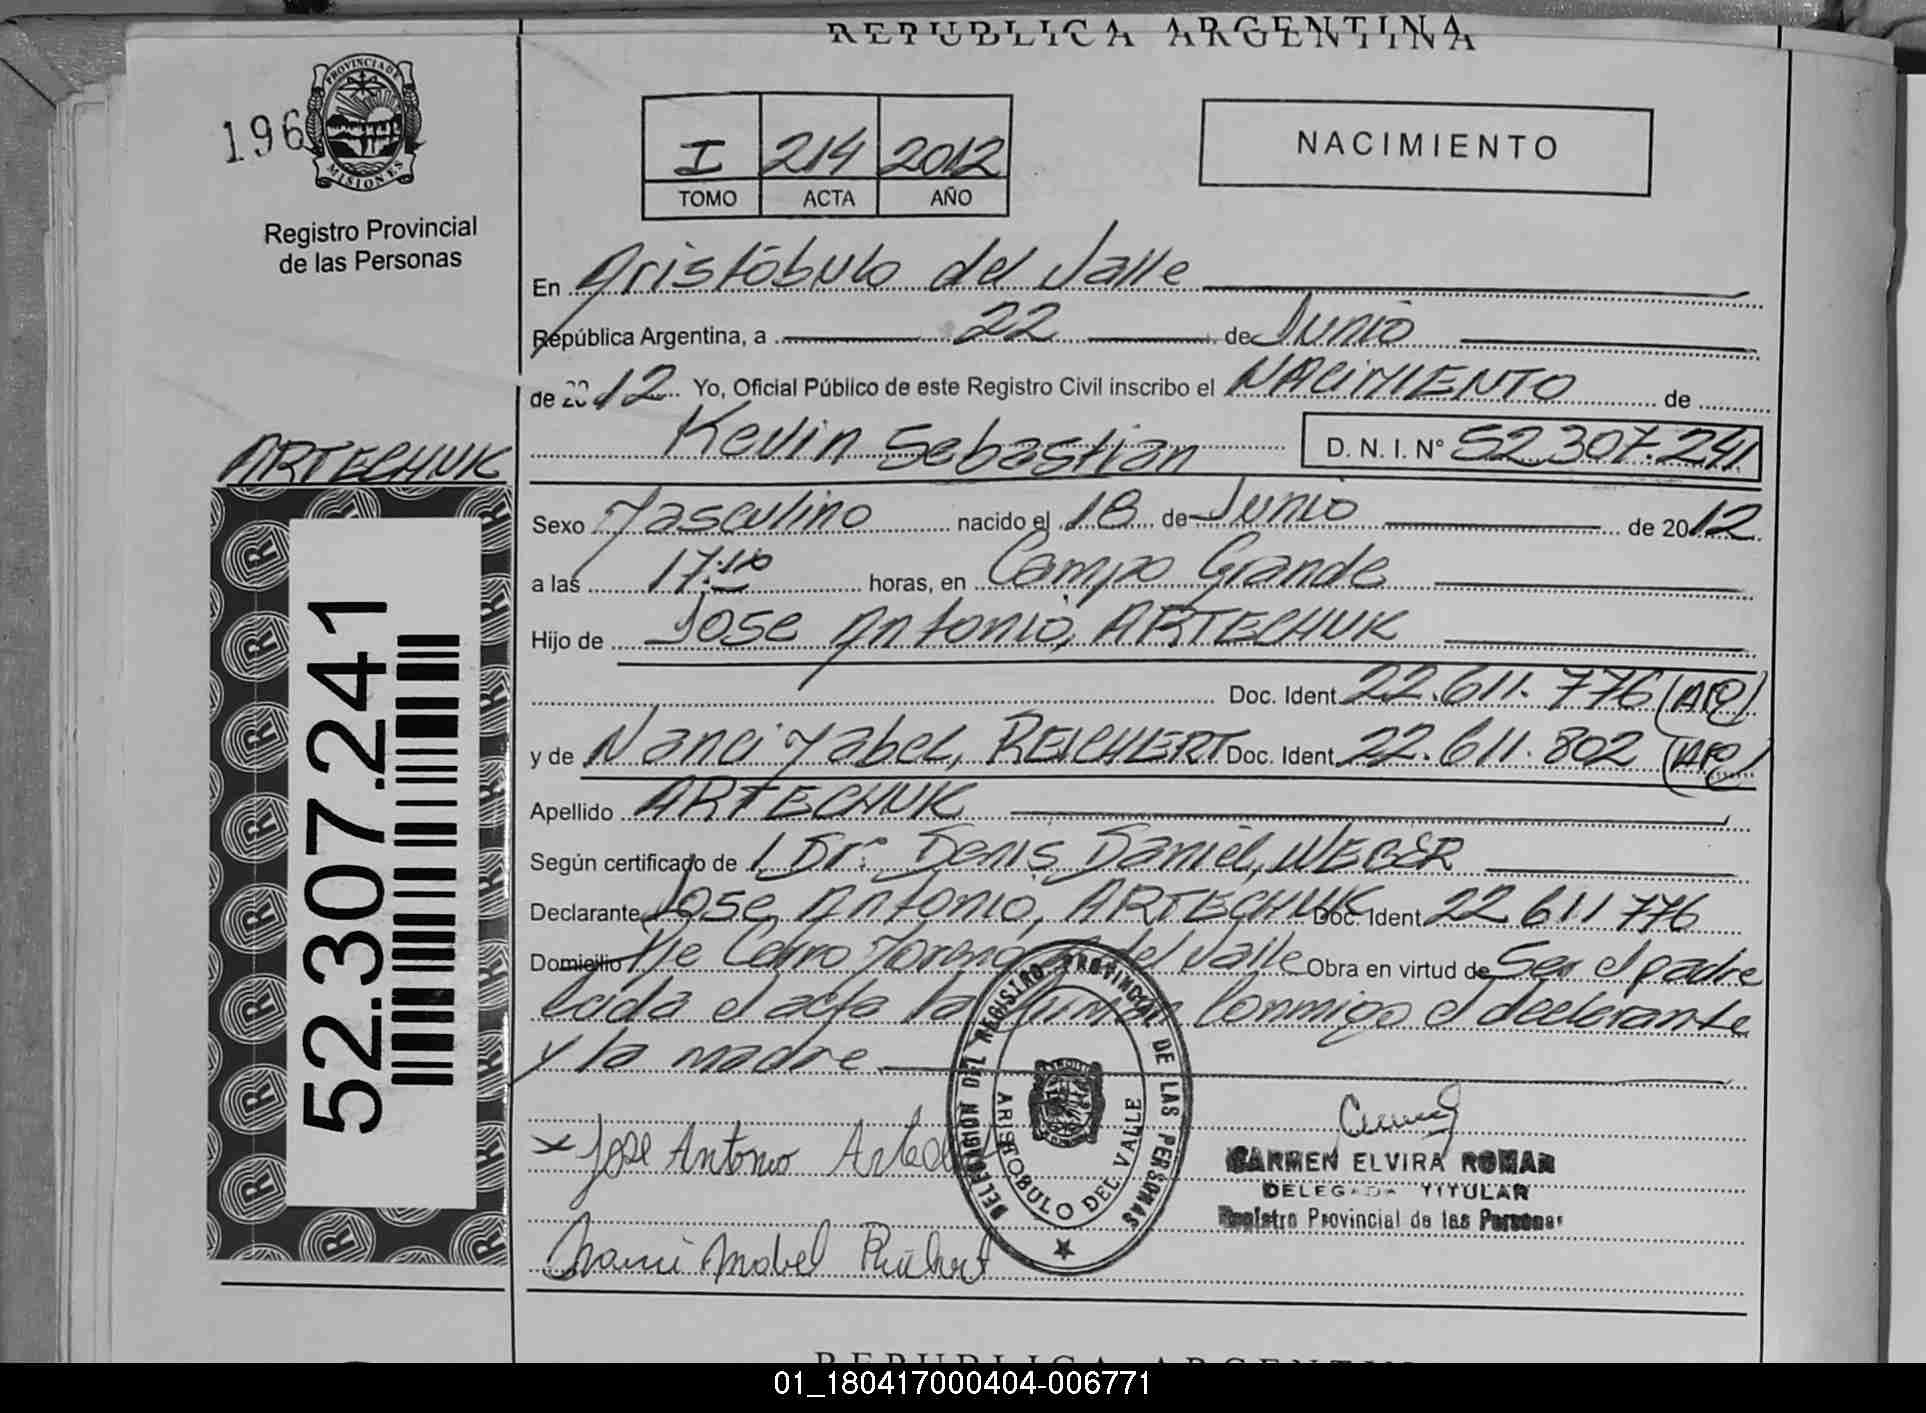 REPUBLICA ARGENTINA
196
PROVINCIA DE
MISIONES
Registro Provincial
de las Personas
I 214 2012
TOMO ACTA AÑO
NACIMIENTO
En Aristóbulo del Valle
República Argentina, a 22 de Junio
de 2012 Yo, Oficial Público de este Registro Civil inscribo el NACIMIENTO de
Kevin Sebastian D. N. I. Nº 52307.241
ARTECHUK
52.307.241
Sexo Masculino nacido el 18 de Junio de 2012
a las 17:10 horas, en Campo Grande
Hijo de Jose Antonio, ARTECHUK
Doc. Ident. 22.611.776
y de Nanci Mabel, REICHERT Doc. Ident. 22.611.802
Apellido ARTECHUK
Según certificado de Dr. Denis Daniel, WEBER
Declarante Jose Antonio, ARTECHUK Doc. Ident. 22 611 776
Domicilio Cerro Moreno A del Valle Obra en virtud de Ser el padre
Leida el acta la firman Conmigo el declarante
y la madre
DELEGACION DEL REGISTRO PROVINCIAL DE LAS PERSONAS
ARISTOBULO DEL VALLE
x Jose Antonio
CARMEN ELVIRA ROMAN
DELEGADA TITULAR
Registro Provincial de las Personas
Nanci Mabel Reichert
REPUBLICA ARGENTINA
01_180417000404-006771